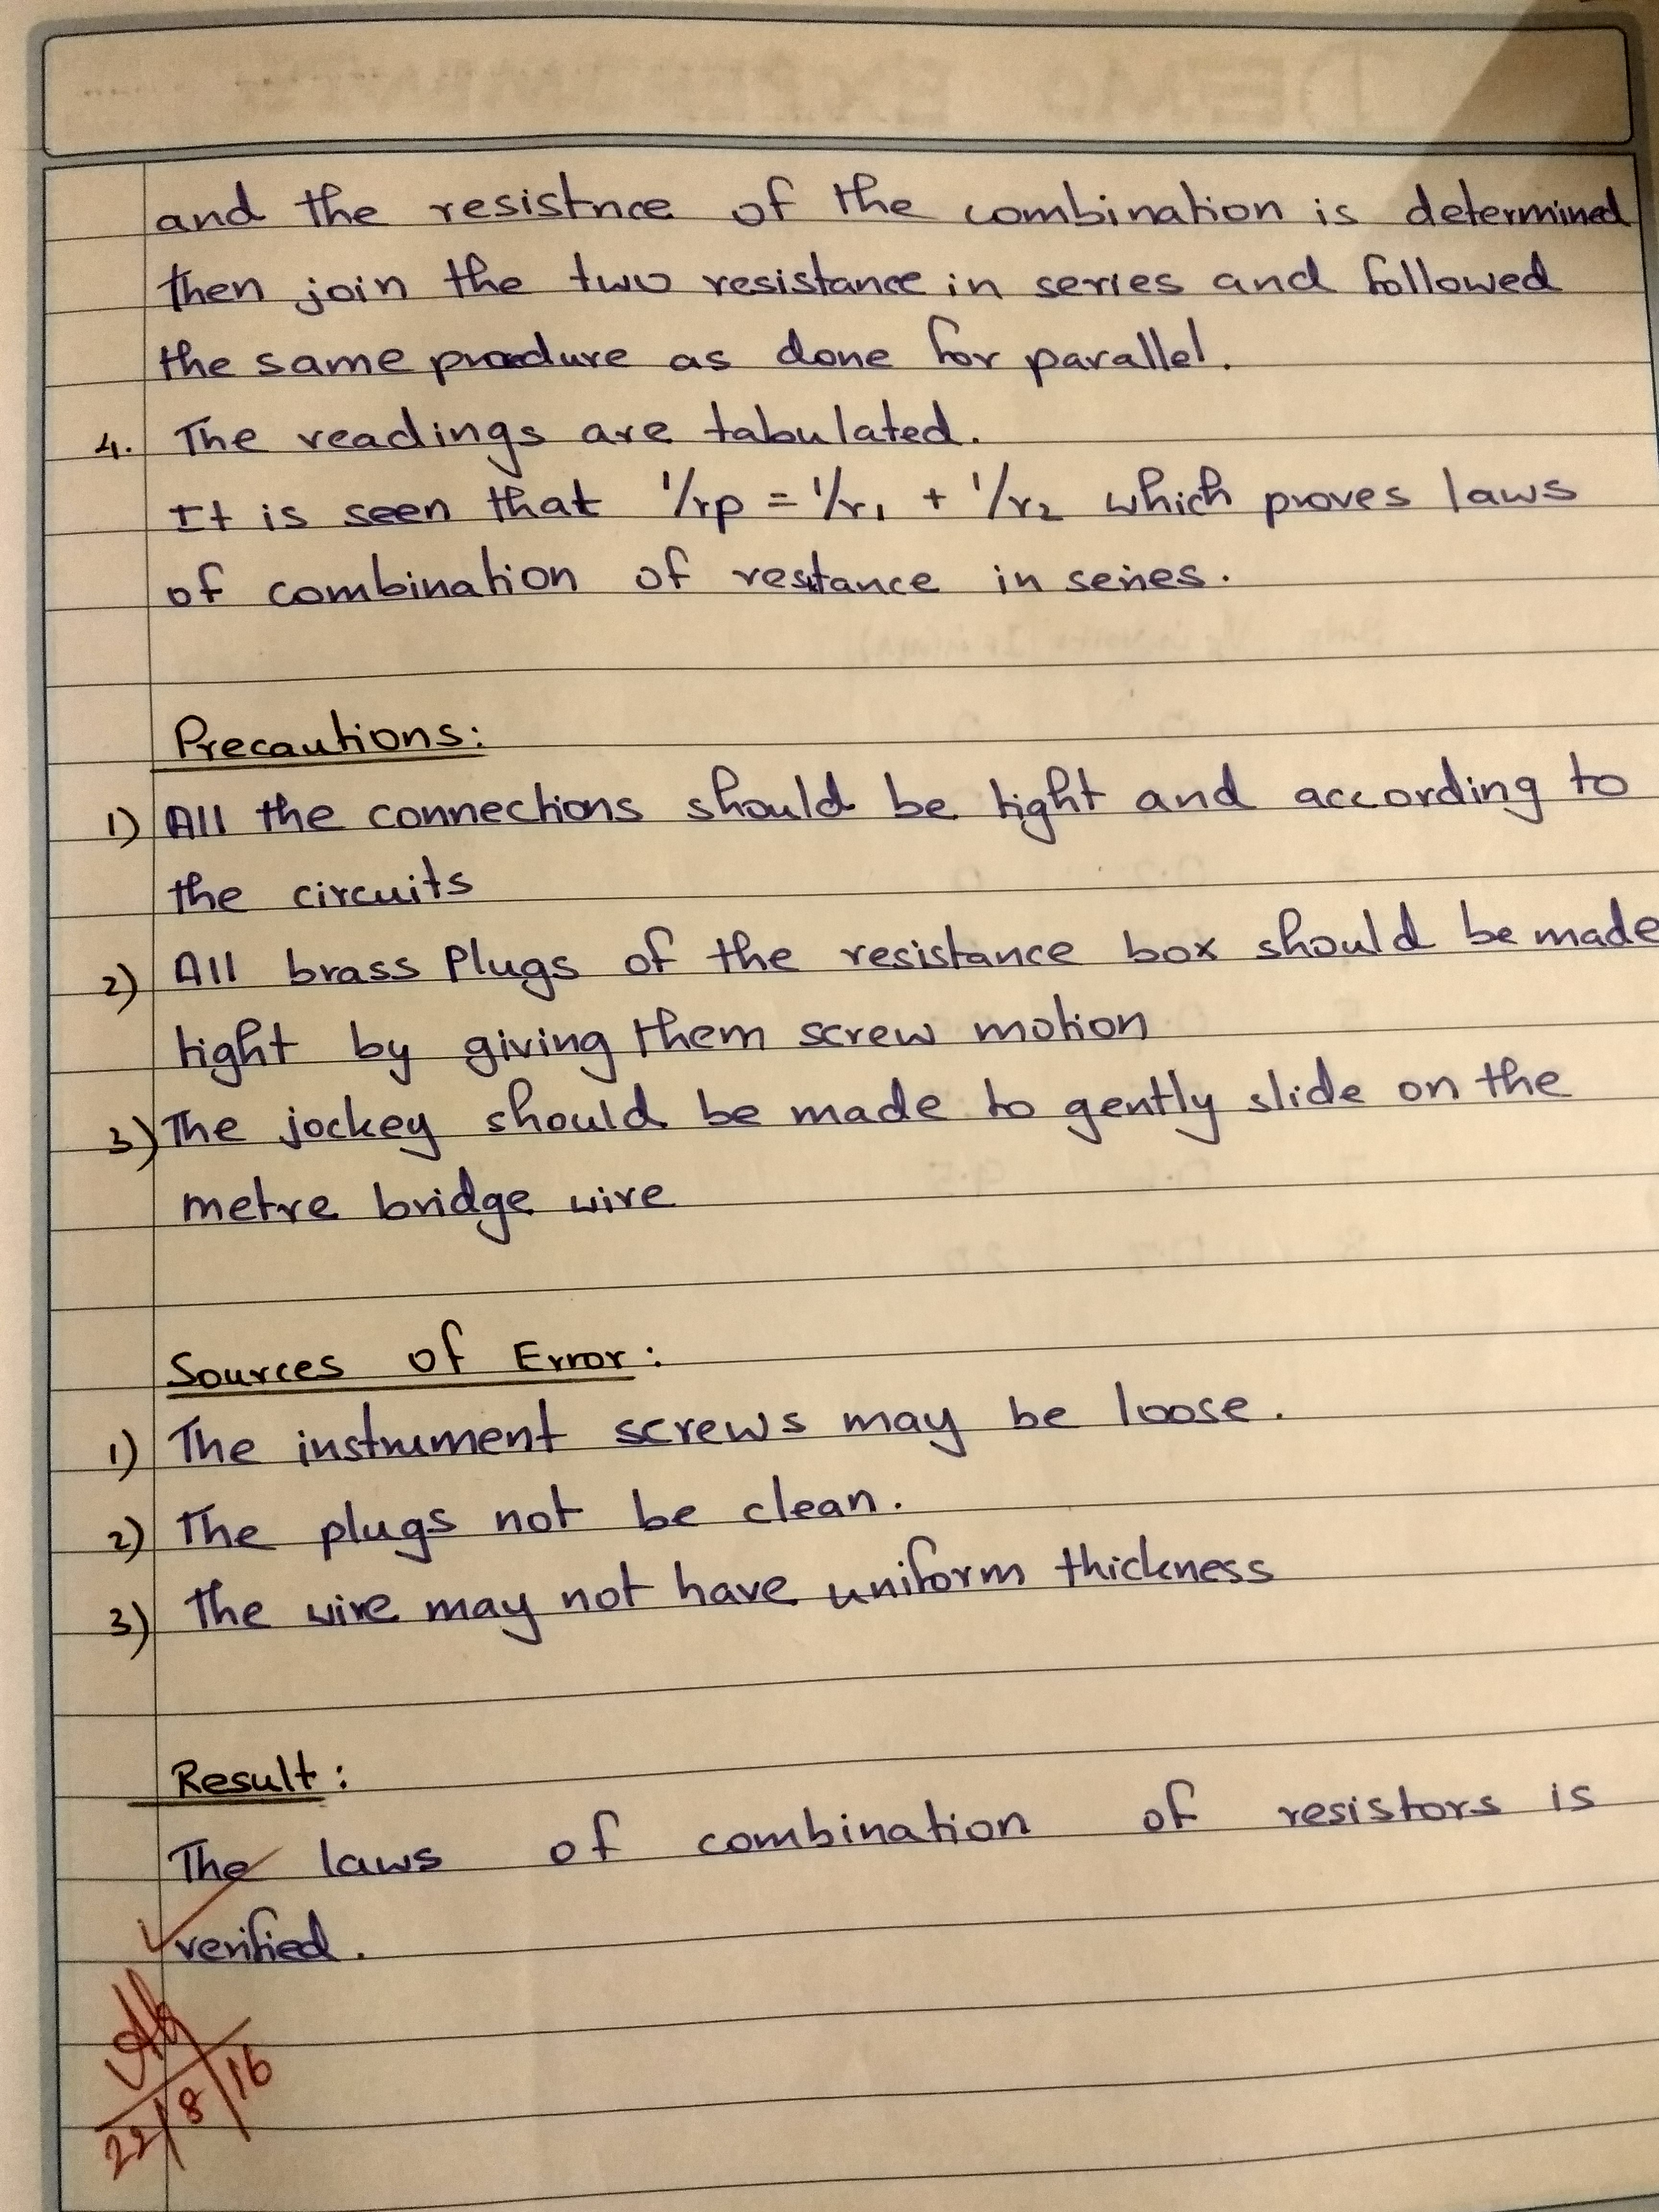 and the resistnce of the combination is determined
then join the two resistance in series and followed
the same procedure as done for parallel.
4. The readings are tabulated.
It is seen that 1/rp = 1/r1 + 1/r2 which proves laws
of combination of restance in series.
Precautions:
1) All the connections should be tight and according to
the circuits
2) All brass Plugs of the resistance box should be made
tight by giving them screw motion
3) The jockey should be made to gently slide on the
metre bridge wire
Sources of Error:
1) The instrument screws may be loose.
2) The plugs not be clean.
3) The wire may not have uniform thickness
Result:
The laws of combination of resistors is
verified.
22/8/16